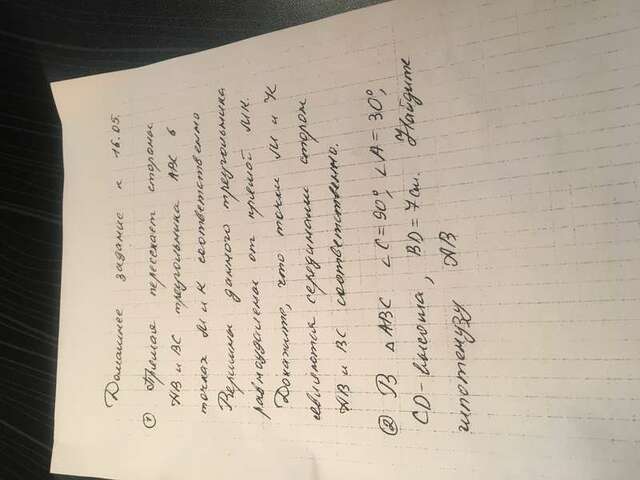 Домашнее задание к 16.05.
① Прямая пересекает стороны
АВ и ВС треугольника АВС в
точках М и К соответственно
Вершины данного треугольника
равноудалены от прямой МК.
Докажите, что точки М и К
являются серединами сторон
АВ и ВС соответственно.
② В △ABC ∠C=90°, ∠A=30°,
CD-высота, BD=7см. Найдите
гипотенузу АВ